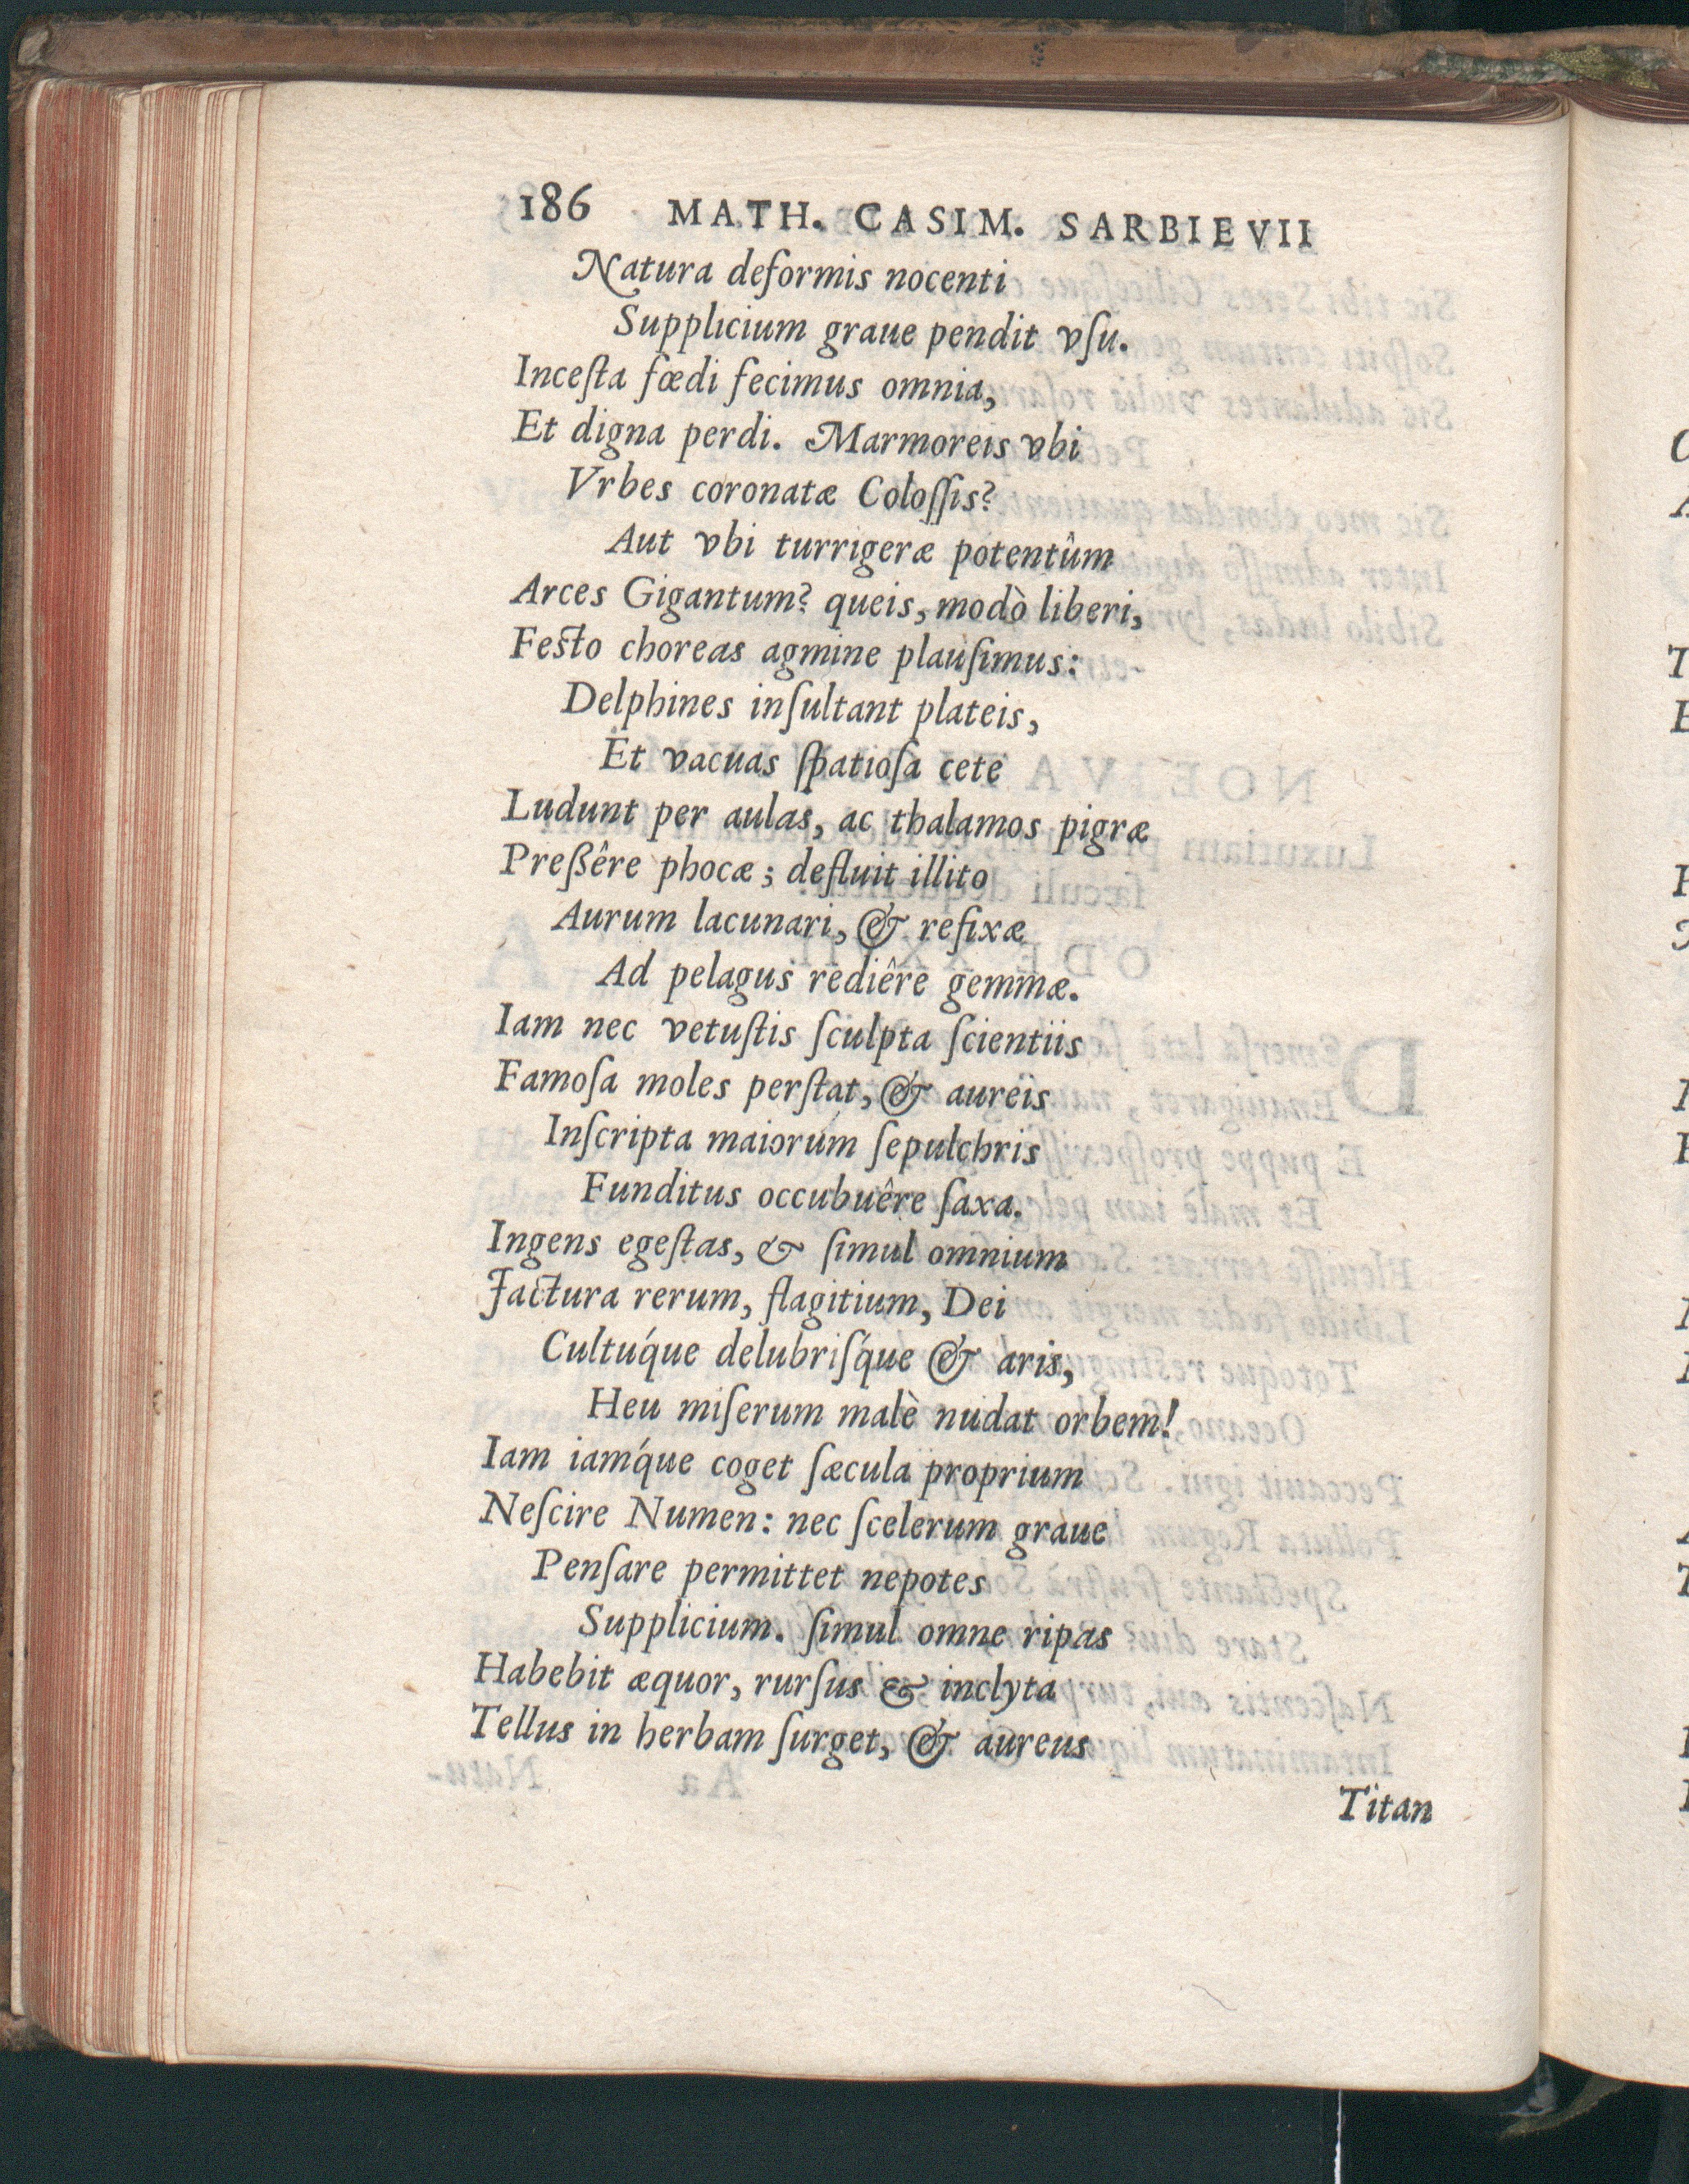 186 MATH. CASIM. SARBIEVII
Natura deformis nocenti
Supplicium graue pendit vſu.
Inceſta fœdi fecimus omnia,
Et digna perdi. Marmoreis vbi
Vrbes coronatæ Coloſſis?
Aut vbi turrigeræ potentûm
Arces Gigantum? queis, modò liberi,
Feſto choreas agmine plauſimus:
Delphines inſultant plateis,
Et vacuas ſpatioſa cete
Ludunt per aulas, ac thalamos pigræ
Preßêre phocæ; defluit illito
Aurum lacunari, & refixæ
Ad pelagus rediêre gemmæ.
Iam nec vetuſtis ſculpta ſcientiis
Famoſa moles perſtat, & aureis
Inſcripta maiorum ſepulchris
Funditus occubuêre ſaxa.
Ingens egeſtas, & ſimul omnium
Jactura rerum, flagitium, Dei
Cultúque delubriſq́ue & aris,
Heu miſerum malè nudat orbem!
Iam iamq́ue coget ſæcula proprium
Neſcire Numen: nec ſcelerum graue
Penſare permittet nepotes
Supplicium. ſimul omne ripas
Habebit æquor, rurſus & inclyta
Tellus in herbam ſurget, & aureus
Titan